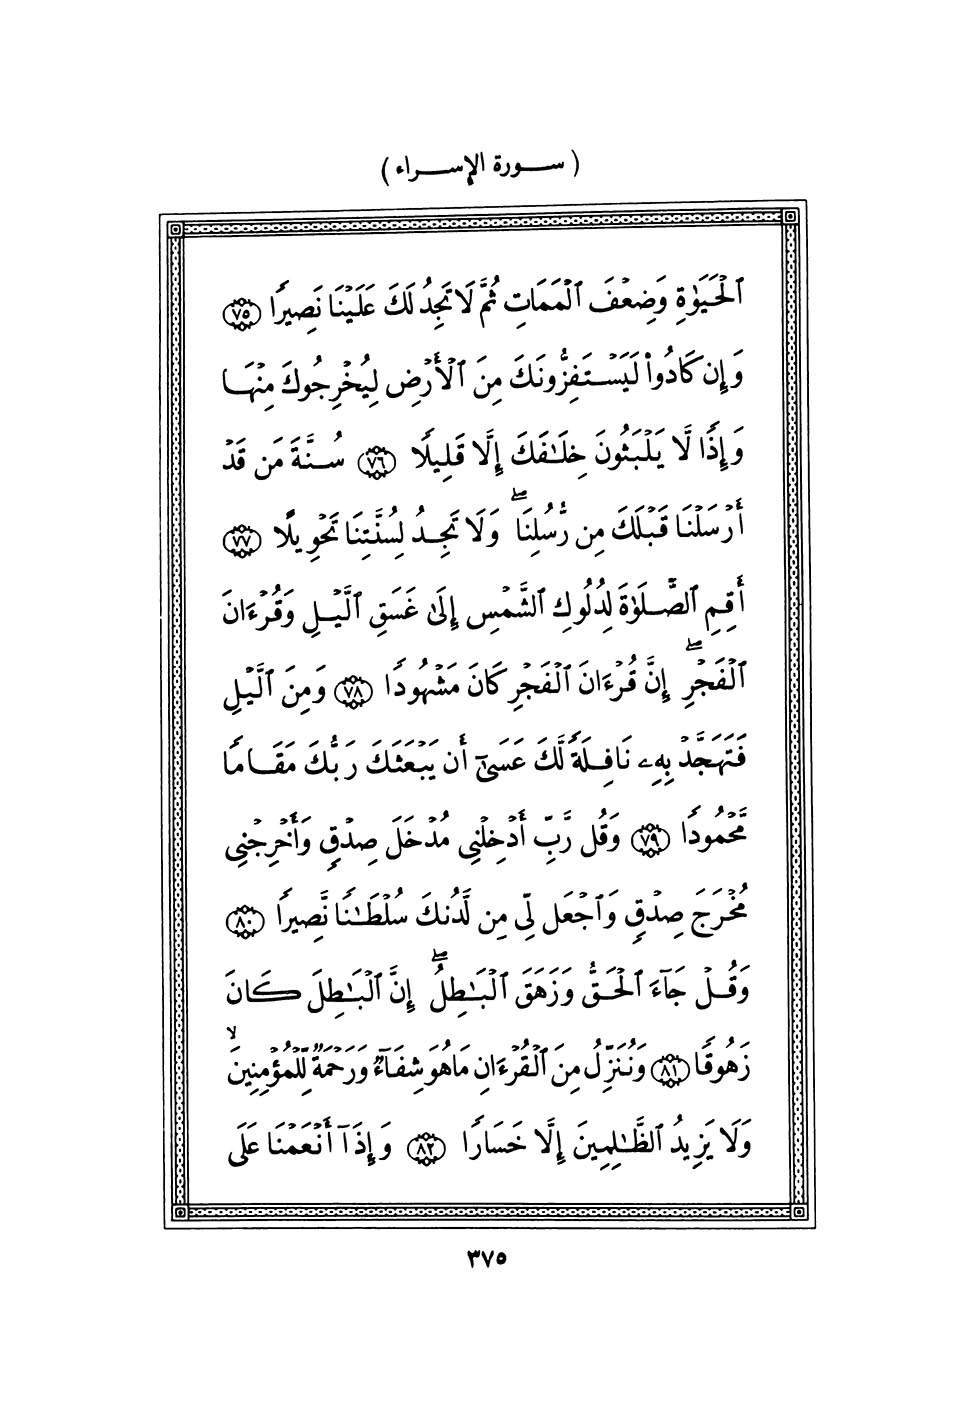 ( سورة الإسراء )
ٱلْحَيَوٰةِ وَضِعْفَ ٱلْمَمَاتِ ثُمَّ لَا تَجِدُ لَكَ عَلَيْنَا نَصِيرًا ﴿٧٥﴾
وَإِن كَادُوا۟ لَيَسْتَفِزُّونَكَ مِنَ ٱلْأَرْضِ لِيُخْرِجُوكَ مِنْهَا
وَإِذًا لَّا يَلْبَثُونَ خِلَٰفَكَ إِلَّا قَلِيلًا ﴿٧٦﴾ سُنَّةَ مَن قَدْ
أَرْسَلْنَا قَبْلَكَ مِن رُّسُلِنَا ۖ وَلَا تَجِدُ لِسُنَّتِنَا تَحْوِيلًا ﴿٧٧﴾
أَقِمِ ٱلصَّلَوٰةَ لِدُلُوكِ ٱلشَّمْسِ إِلَىٰ غَسَقِ ٱلَّيْلِ وَقُرْءَانَ
ٱلْفَجْرِ ۖ إِنَّ قُرْءَانَ ٱلْفَجْرِ كَانَ مَشْهُودًا ﴿٧٨﴾ وَمِنَ ٱلَّيْلِ
فَتَهَجَّدْ بِهِۦ نَافِلَةً لَّكَ عَسَىٰٓ أَن يَبْعَثَكَ رَبُّكَ مَقَامًا
مَّحْمُودًا ﴿٧٩﴾ وَقُل رَّبِّ أَدْخِلْنِى مُدْخَلَ صِدْقٍ وَأَخْرِجْنِى
مُخْرَجَ صِدْقٍ وَٱجْعَل لِّى مِن لَّدُنكَ سُلْطَٰنًا نَّصِيرًا ﴿٨٠﴾
وَقُلْ جَآءَ ٱلْحَقُّ وَزَهَقَ ٱلْبَٰطِلُ ۖ إِنَّ ٱلْبَٰطِلَ كَانَ
زَهُوقًا ﴿٨١﴾ وَنُنَزِّلُ مِنَ ٱلْقُرْءَانِ مَا هُوَ شِفَآءٌ وَرَحْمَةٌ لِّلْمُؤْمِنِينَ ۙ
وَلَا يَزِيدُ ٱلظَّٰلِمِينَ إِلَّا خَسَارًا ﴿٨٢﴾ وَإِذَآ أَنْعَمْنَا عَلَى
٣٧٥